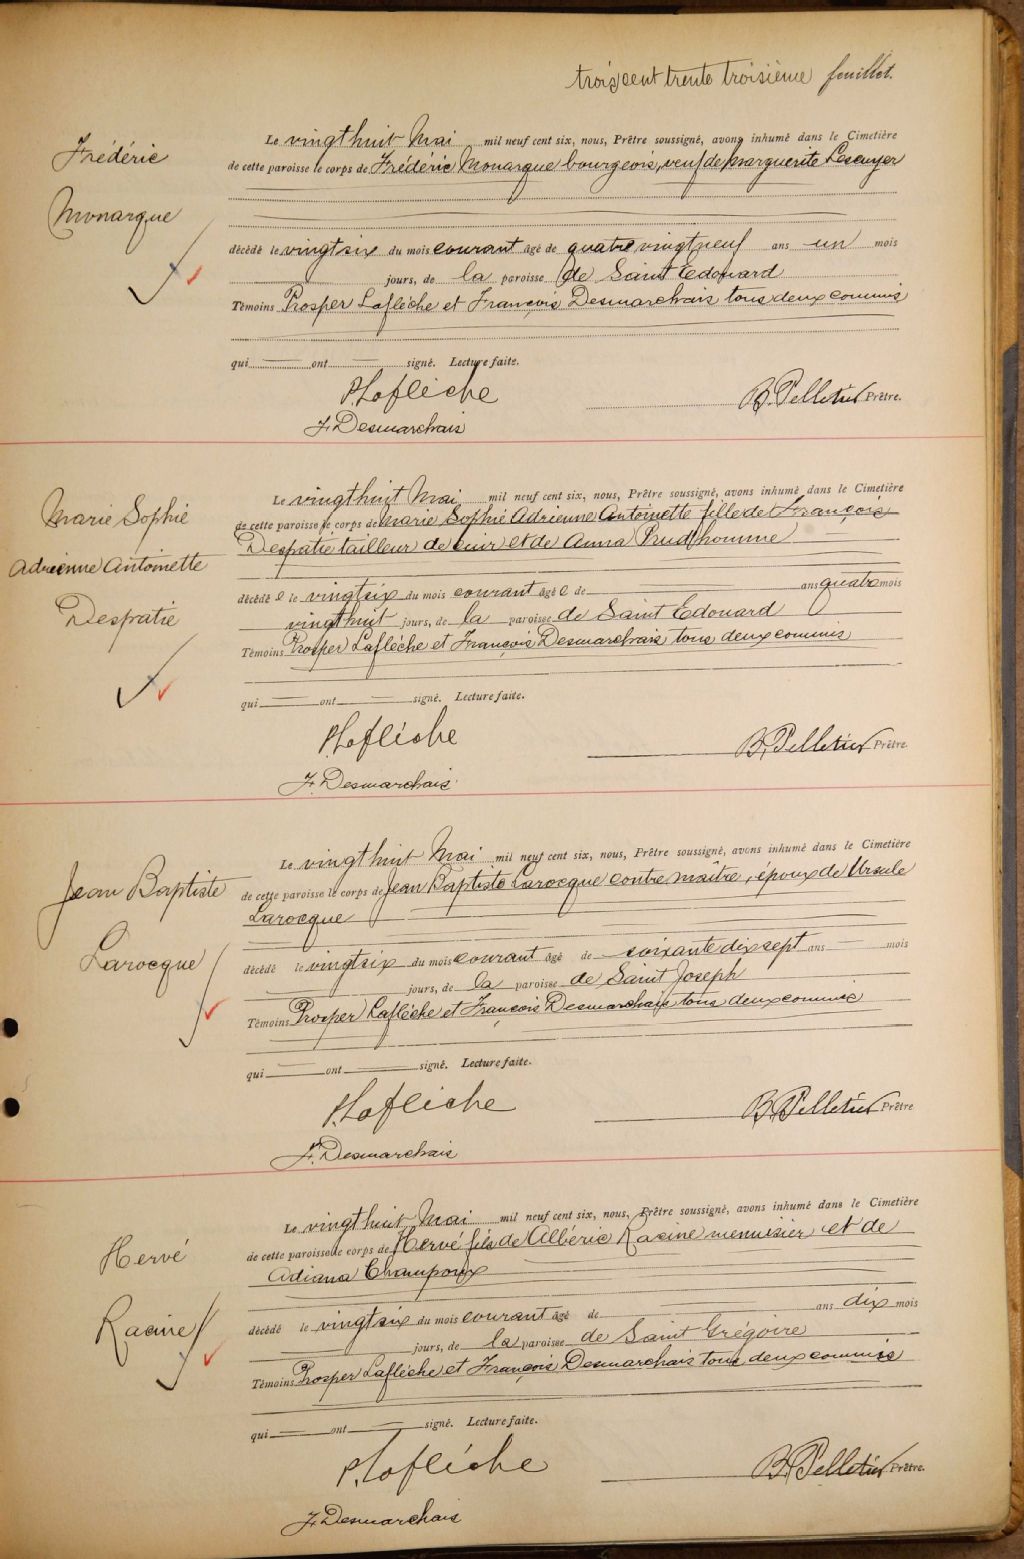 trois cent trente troisième feuillet.
Frédéric
Monarque
Le vingthuit Mai mil neuf cent six, nous, Prêtre soussigné, avons inhumé dans le Cimetière
de cette paroisse le corps de Frédéric Monarque bourgeois, veuf de Marguerite Lescuyer
décédé le vingtsix du mois courant âgé de quatre vingt neuf ans un mois
jours, de la paroisse de Saint Edouard
Témoins Prosper Laflèche et François Desmarchais tous deux commis
qui ont signé. Lecture faite.
P. Laflèche
B. Pelletier Prêtre.
F. Desmarchais
Marie Sophie
Adrienne Antoinette
Despatie
Le vingthuit Mai mil neuf cent six, nous, Prêtre soussigné, avons inhumé dans le Cimetière
de cette paroisse le corps de Marie Sophie Adrienne Antoinette fille de François
Despatie tailleur de cuir et de Anna Prudhomme
décédé e le vingtsix du mois courant âgé e de ans quatre mois
vingthuit jours, de la paroisse de Saint Edouard
Témoins Prosper Laflèche et François Desmarchais tous deux commis
qui ont signé. Lecture faite.
P. Laflèche
B. Pelletier Prêtre.
F. Desmarchais
Jean Baptiste
Larocque
Le vingthuit Mai mil neuf cent six, nous, Prêtre soussigné, avons inhumé dans le Cimetière
de cette paroisse le corps de Jean Baptiste Larocque contre maître, époux de Ursule
Larocque
décédé le vingtsix du mois courant âgé de soixante dix sept ans mois
jours, de la paroisse de Saint Joseph
Témoins Prosper Laflèche et François Desmarchais tous deux commis
qui ont signé. Lecture faite.
P. Laflèche
B. Pelletier Prêtre
F. Desmarchais
Hervé
Racine
Le vingthuit Mai mil neuf cent six, nous, Prêtre soussigné, avons inhumé dans le Cimetière
de cette paroisse le corps de Hervé fils de Albéric Racine menuisier et de
Adiana Champoux
décédé le vingtsix du mois courant âgé de ans dix mois
jours, de la paroisse de Saint Grégoire
Témoins Prosper Laflèche et François Desmarchais tous deux commis
qui ont signé. Lecture faite.
P. Laflèche
B. Pelletier Prêtre.
F. Desmarchais